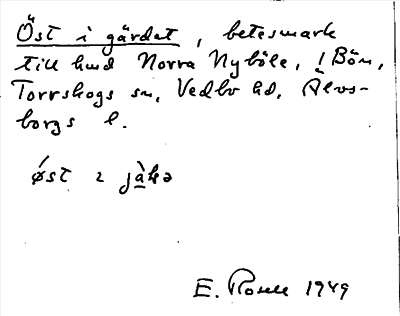 Öst i gärdet, betesmark
till hmd Norra Nyböle, 1 Bön,
Torrskogs sn, Vedbo hd, Älvs-
borgs l.
øst i
E. Rosell 1949